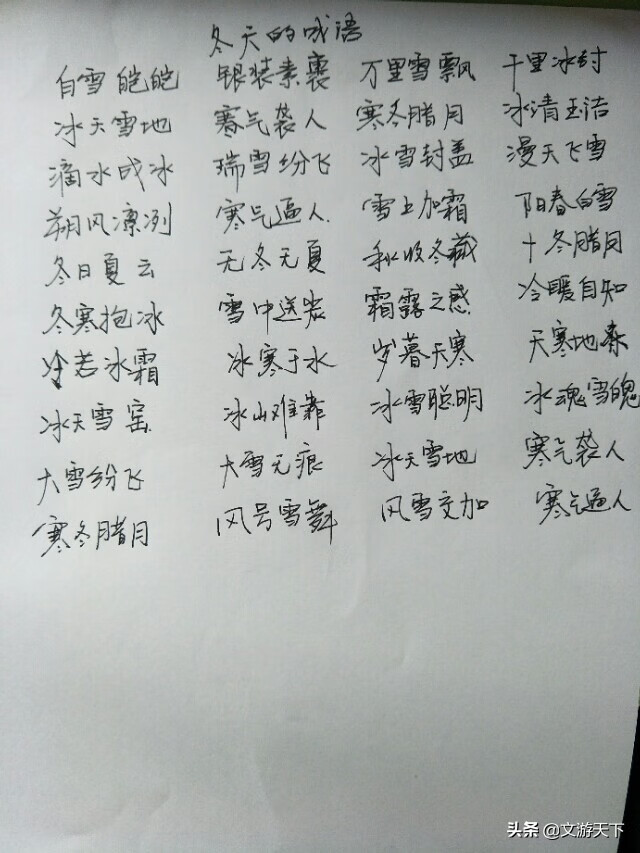 冬天的成语
白雪皑皑 银装素裹 万里雪飘 千里冰封
冰天雪地 寒气袭人 寒冬腊月 冰清玉洁
滴水成冰 瑞雪纷飞 冰雪封盖 漫天飞雪
朔风凛冽 寒气逼人 雪上加霜 阳春白雪
冬日夏云 无冬无夏 秋收冬藏 十冬腊月
冬寒抱冰 雪中送炭 霜露之感 冷暖自知
冷若冰霜 冰寒于水 岁暮天寒 天寒地冻
冰天雪窑 冰山难靠 冰雪聪明 冰魂雪魄
大雪纷飞 大雪无痕 冰天雪地 寒气袭人
寒冬腊月 风号雪舞 风雪交加 寒气逼人
头条 @文游天下